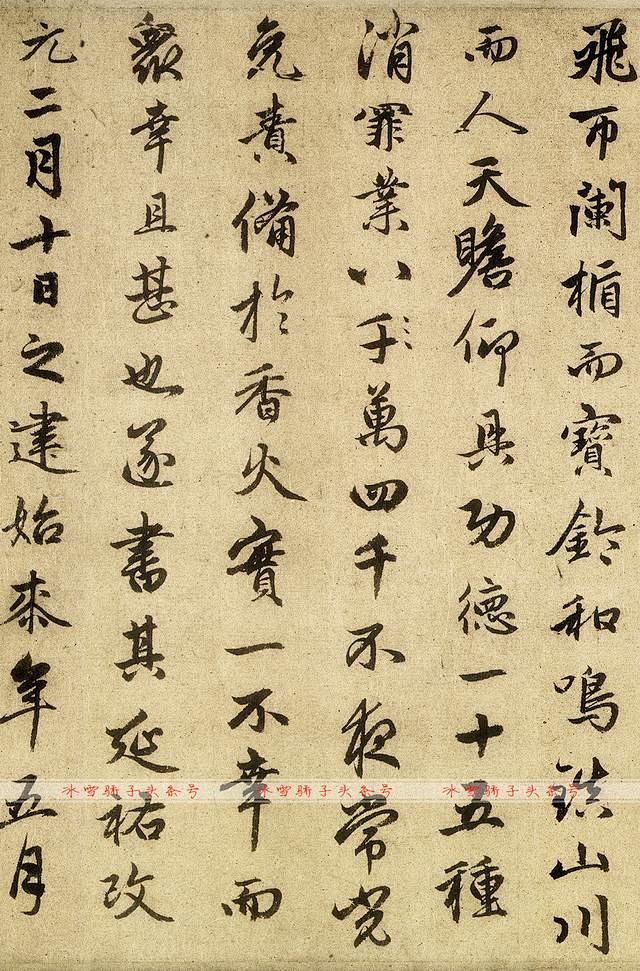 飛帀闌楯而寶鈴和鳴鎮山川
而人天瞻仰具功德一十五種
消罪業八千萬四千不夜常光
免責備於香火實一不幸而
衆幸且甚也遂書其延祐改
元二月十日之建始來年五月
冰雪骄子头条号 冰雪骄子头条号 冰雪骄子头条号